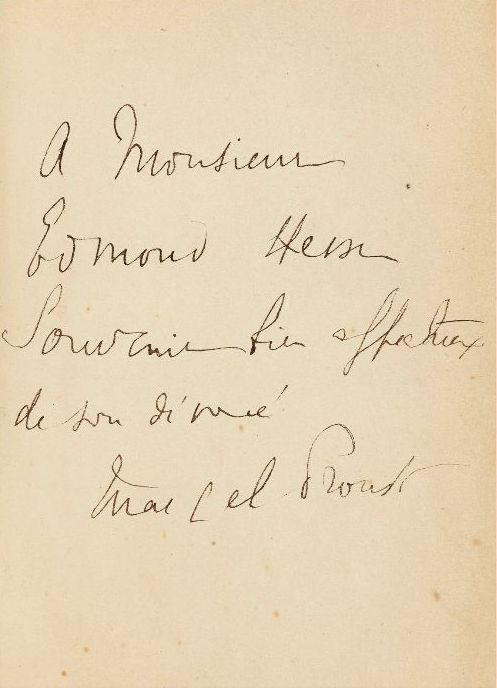 A Monsieur
Edmond Hesse
Souvenir bien affectueux
de son dévoué
Marcel Proust